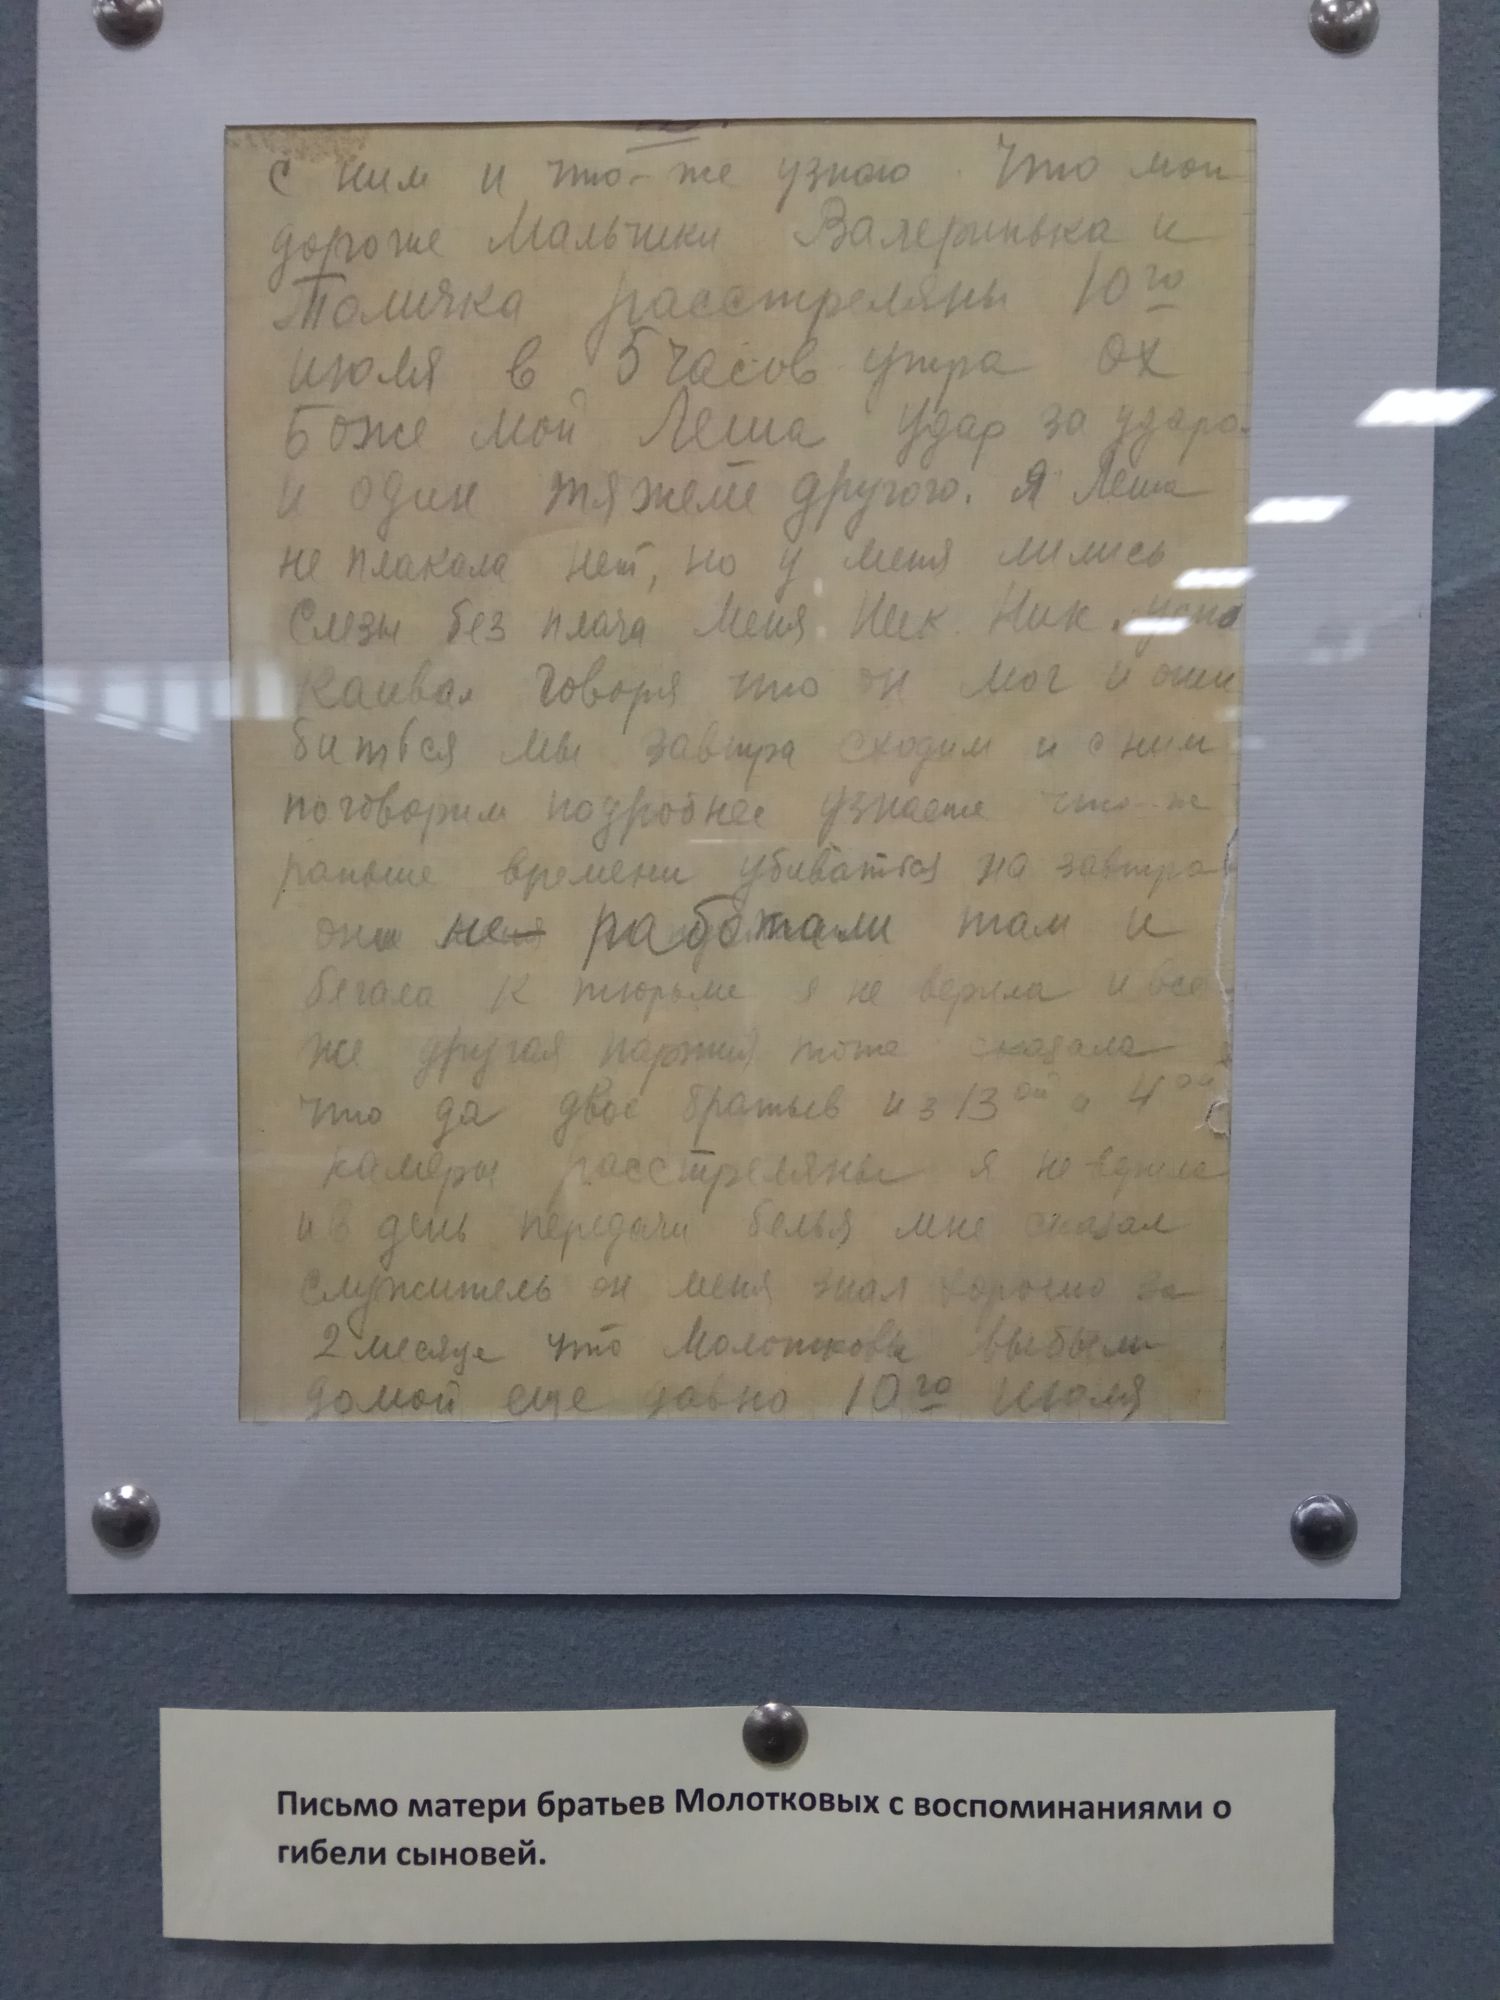 с ним и что-же узнаю. Что мои
дороже Мальчики Валеринька и
Толичка расстреляны 10го
июля в 5 часов утра ох
Боже мой Леша удар за ударо
и один тяжеле другого. Я Леша
не плакала нет, но у меня лились
слезы без плача меня Ник. Ник. успо
каивал говоря что он мог и оши
биться мы завтра сходим и с ним
поговорим подробнее узнаем что-ж
раньше времени убиваться на завтра
они не работали там и
бегала к тюрьме я не верила и все
же другая партия тоже сказала
что да двое братьев из 13ой и 4ой
камеры расстреляны я не верила
и в день передачи белья мне сказал
служитель он меня знал хорошо за
2 месяца что Молотковы выбыли
домой еще давно 10го июля
Письмо матери братьев Молотковых с воспоминаниями о
гибели сыновей.